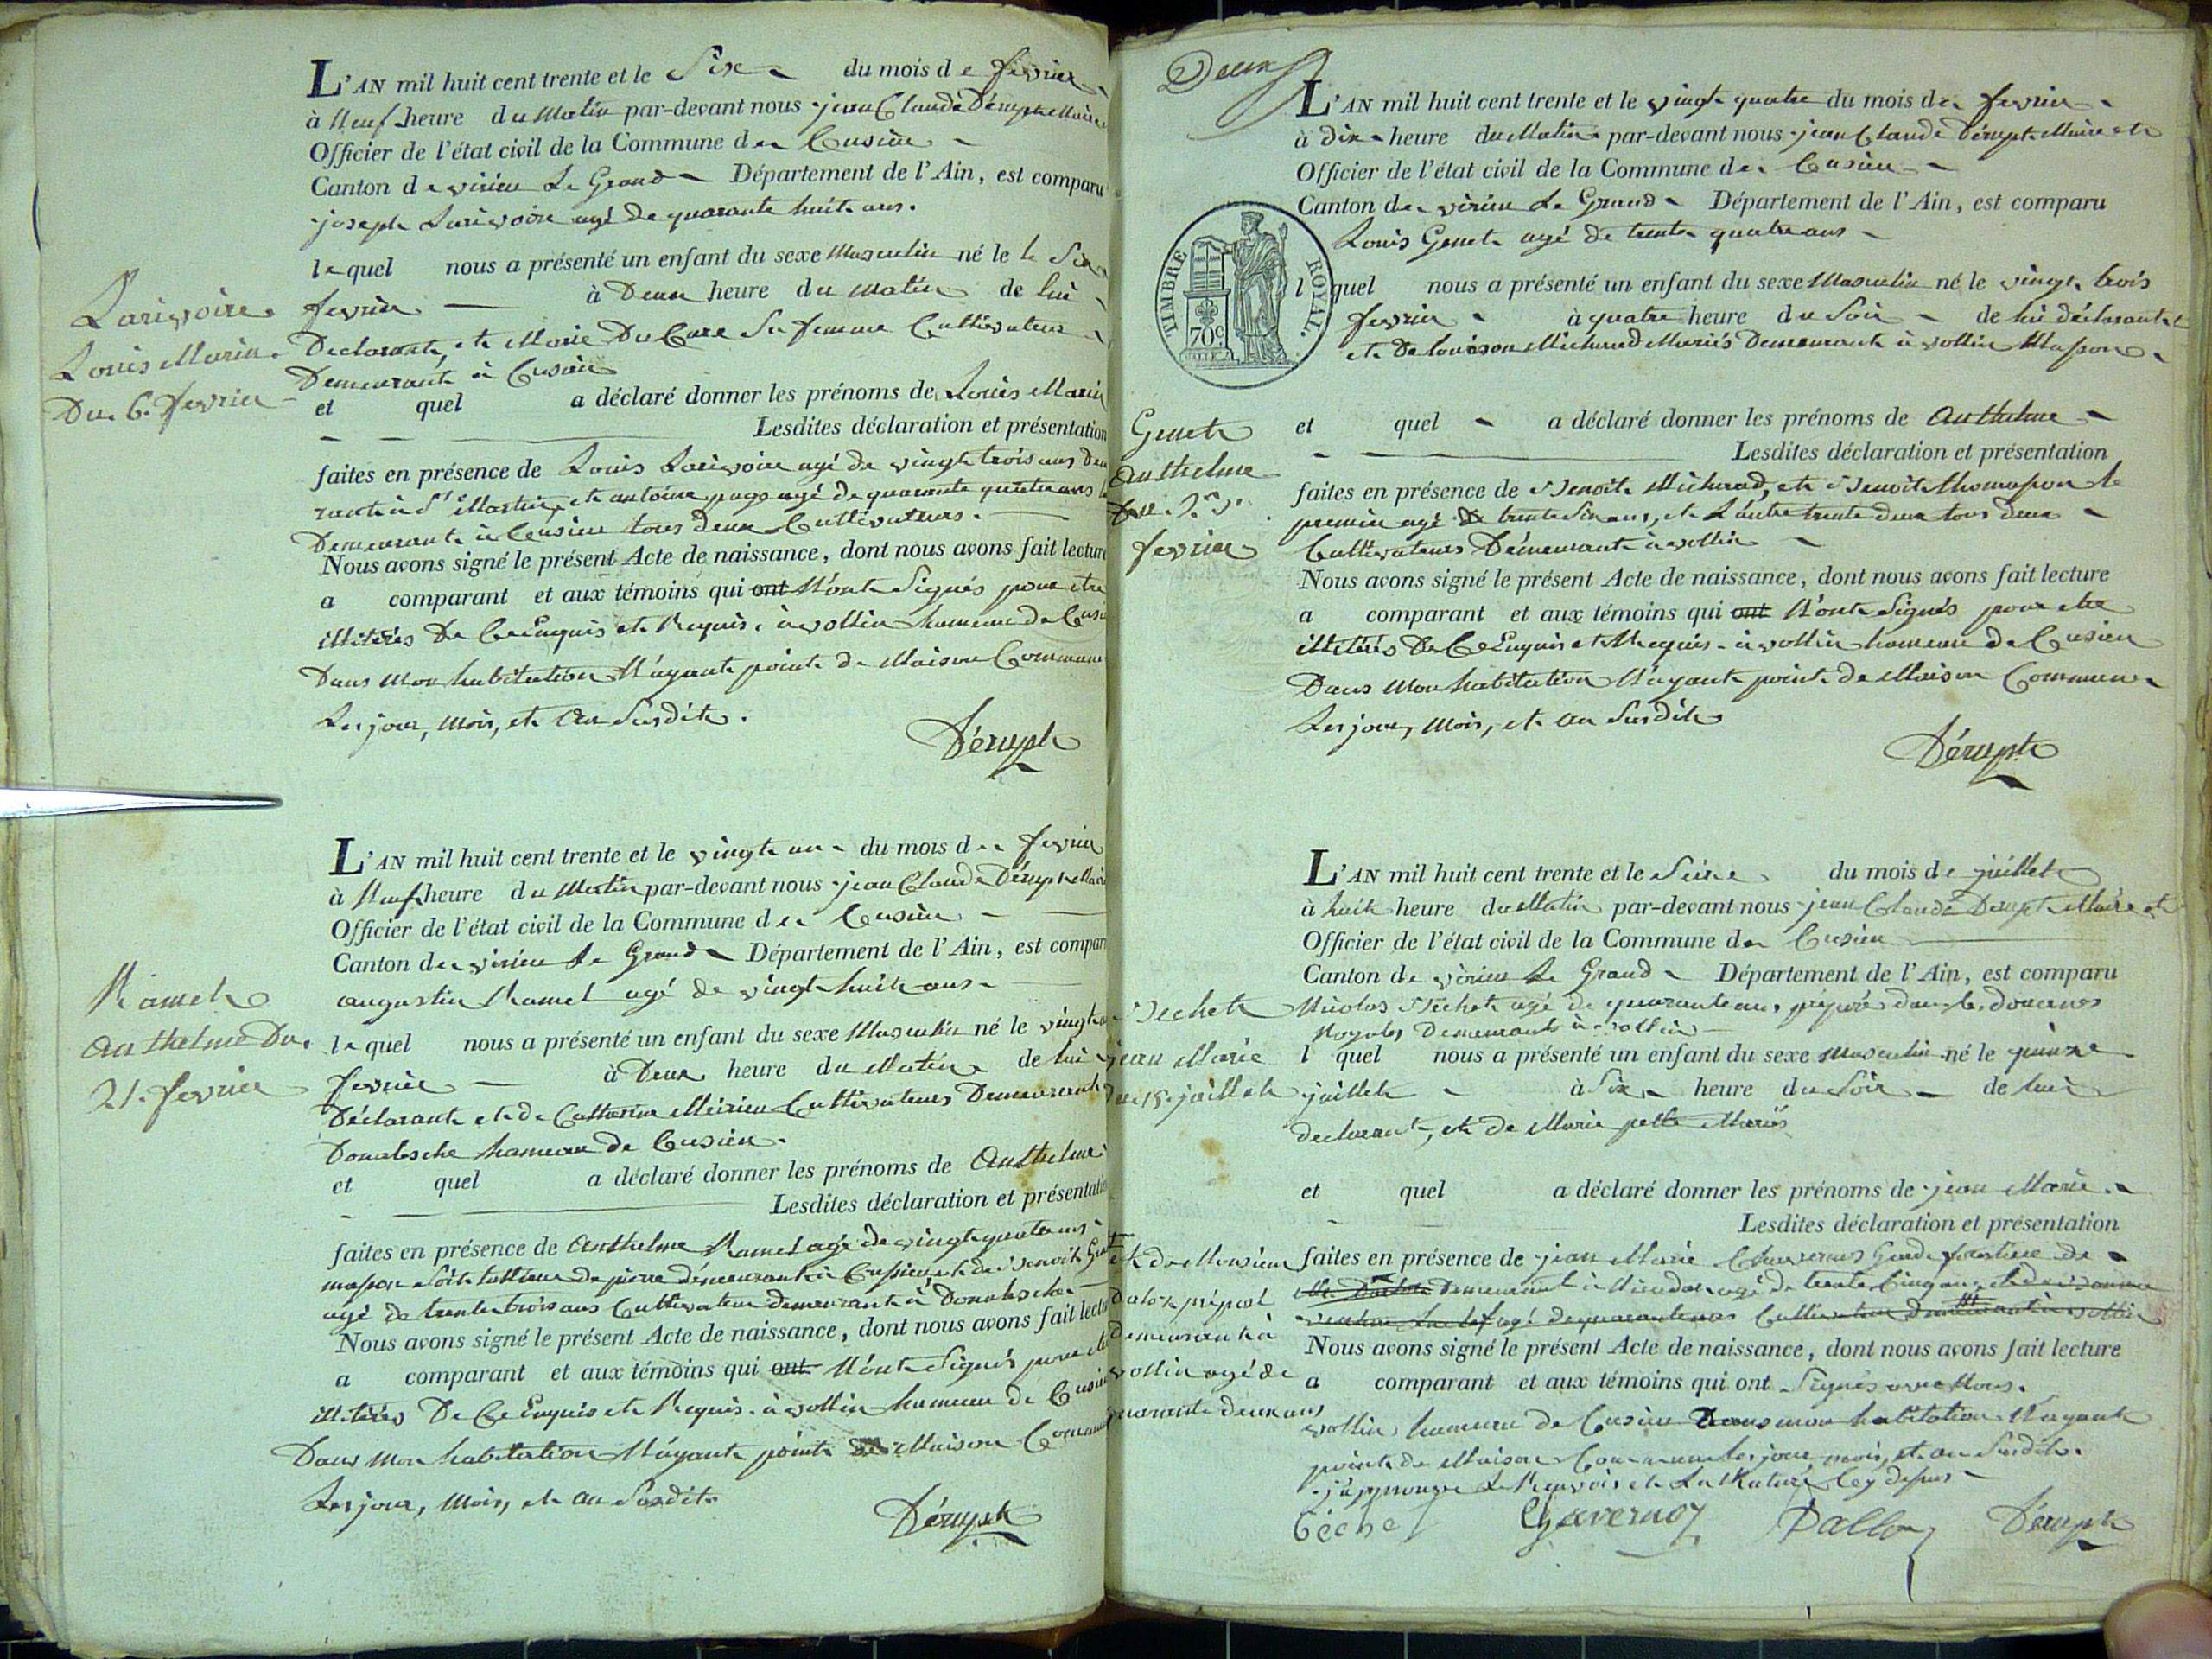 L'AN mil huit cent trente et le Six du mois de fevrier
à Neuf heure du Matin par-devant nous jean Claude Dérupt Maire
Officier de l'état civil de la Commune de Cusieu
Canton de virieu Le Grand Département de l'Ain, est comparu
joseph Larivoire agé de quarante huit ans.
lequel nous a présenté un enfant du sexe Masculin né le le Six
fevrier à Deux heure du matin de lui
Declarant, et Marie Du Cure Sa femme Cultivateur
Demeurant à Cusieu
et quel a déclaré donner les prénoms de Louis Marin
Lesdites déclaration et présentation
faites en présence de Louis Larivoire agé de vingt trois ans
rant à St Martin, et antoine page agé de quarante quatre ans
Demeurant à Cusieu tous Deux Cultivateurs.
Nous avons signé le présent Acte de naissance, dont nous avons fait lecture
a comparant et aux témoins qui ont N'ont Signés pour etre
illitérés De Ce Enquis et Requis. à vollin hameau de Cusieu
Dans Mon habitation N'ayant point de Maison Commune
Les jour, mois, et an Susdits.
Dérupt
Larivoire
Louis Marin
Du 6. fevrier
L'AN mil huit cent trente et le vingt un du mois de fevrier
à Neuf heure du Matin par-devant nous jean Claude Dérupt Maire
Officier de l'état civil de la Commune de Cusieu
Canton de virieu Le Grand Département de l'Ain, est comparu
augustin Ramel agé de vingt huit ans
lequel nous a présenté un enfant du sexe Masculin né le vingt
fevrier à Deux heure du Matin de lui
Déclarant et de Catherine Meirieu Cultivateurs Demeurant
hameau de Cusieu.
et quel a déclaré donner les prénoms de Anthelme
Lesdites déclaration et présentation
faites en présence de Anthelme Ramel agé de vingt quatre ans
maçon tailleur de pierre démeurant à Cusieu et de Benoit
agé de trente trois ans Cultivateur demeurant à
Nous avons signé le présent Acte de naissance, dont nous avons fait lecture
a comparant et aux témoins qui ont N'ont Signés pour etre
illitérés De Ce Enquis et Requis. à vollin hameau de Cusieu
Dans Mon habitation N'ayant point de Maison Commune
Les jour, Mois, et an Susdits
Dérupt
Ramel
Anthelme Du
21. fevrier
Deux
L'AN mil huit cent trente et le vingt quatre du mois de fevrier
à Dix heure du Matin par-devant nous jean Claude Dérupt Maire et
Officier de l'état civil de la Commune de Cusieu
Canton de virieu Le Grand Département de l'Ain, est comparu
Louis Genet agé de trente quatre ans
l quel nous a présenté un enfant du sexe Masculin né le vingt trois
fevrier à quatre heure du Soir de lui déclarant
et De Louison Michaud Mariés Demeurant à vollin Maçon
et quel a déclaré donner les prénoms de Anthelme
Lesdites déclaration et présentation
faites en présence de Benoit Michaud, et Benoit thomasson le
premier agé De trente Six ans, et L'autre trente deux tous deux
Cultivateurs Démeurant à vollin
Nous avons signé le présent Acte de naissance, dont nous avons fait lecture
a comparant et aux témoins qui ont N'ont Signés pour etre
illitérés De Ce Enquis et Requis à vollin hameau de Cusieu
Dans Mon habitation N'ayant point de Maison Commune
Les jour, Mois, et an Susdits
Dérupt
TIMBRE ROYAL.
70c
Genet
Anthelme
fevrier
L'AN mil huit cent trente et le Seize du mois de juillet
à huit heure du Matin par-devant nous jean Claude Dérupt Maire et
Officier de l'état civil de la Commune de Cusieu
Canton de virieu Le Grand Département de l'Ain, est comparu
Nicolas Béchet agé de quarante ans, préposé dans les douanes
Royales Demeurant à vollin
l quel nous a présenté un enfant du sexe masculin né le quinze
juillet à Six heure du Soir de lui
declarant, et de Marie pelle Mariés
et quel a déclaré donner les prénoms de jean Marie
Lesdites déclaration et présentation
faites en présence de jean Marie Chavernoz Garde forestier de
Demeurant à agé de trente Cinq ans
agé de quarante ans Cultivateur demeurant à vollin
Nous avons signé le présent Acte de naissance, dont nous avons fait lecture
a comparant et aux témoins qui ont Signés avec Nous.
vollin hameau de Cusieu Dans mon habitation N'ayant
point de Maison Commune les jour, mois, et an Susdits.
j'approuve Le Renvois et La Rature Cy dessus
Béchet Chavernoz Dalloz Dérupt
Béchet
jean Marie
du 15. juillet
et de Monsieur
Daloz préposé
Demeurant à
vollin agé de
quarante deux ans